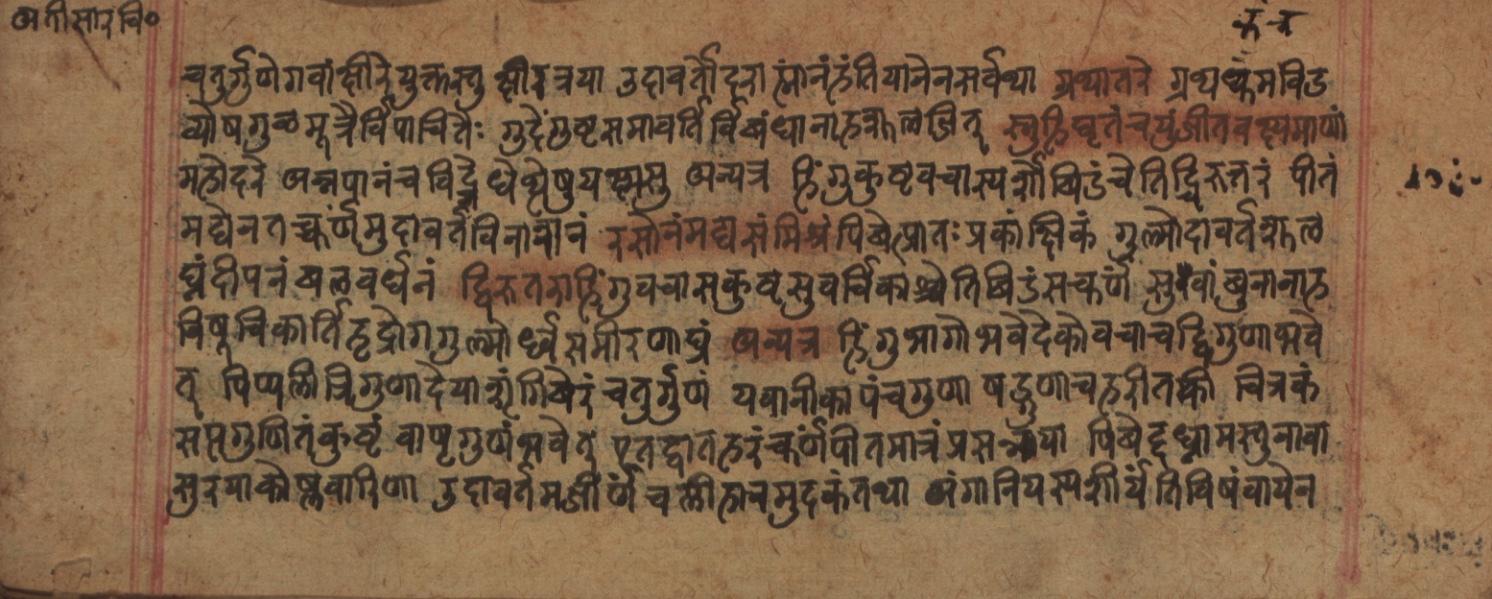 अतीसारवि०
चतुर्गुणेगवांक्षीरेयुक्तस्तु क्षीरत्रया उदावर्तोदरा त्मानंहंतियानेनसर्वथा ग्रंथांतरे
व्योषगुळमूत्रैर्विपाचितैः गुदेंगुष्टसमावर्तिर्विबंधानाहशूलजित् स्नुहिघृतंचयुंजीतवक्ष्यमाणं
महोदरे अन्नपानंचविड्भे अन्यत्र हिंगुकुष्टवचास्यर्शौबिडंचेतिद्विरुत्तरं पीतं
मद्येनतच्चूर्णमुदावर्तविनाशनं रसोनंमद्यसंमिश्रंपिबेत्प्रातःप्रकांक्षिकं गुल्मोदावर्तशूल
घ्नंदीपनंबलवर्धनं द्विरुतराहिंगुवचासकुष्टसुवर्चिकाश्चेतिबिडंसचूर्णं सुखांबुनानाह
विषूचिकार्तिहृद्रोगगुल्मोर्ध्वसमीरणाघ्नं अन्यत्र हिंगुभागोभवेदेकोवचाचद्विगुणाभवे
त् पिप्पलीत्रिगुणादेयाशृंगिबेरंचतुर्गुणं यवानीकापंचगुणा षड्गुणाचहरीतकी चित्रकं
सप्तगुणितंकुष्टं वाष्टगुणंभवेत् एतद्वातहरंचूर्णंपीतमात्रंप्रसन्नया पिबेद्दध्नामस्तुनावा
सुरयाकोष्णवारिणा उदावर्तमजीर्णंचप्लीहानमुदकंतथा अंगानियस्यशीर्यंतिविषंवायेन